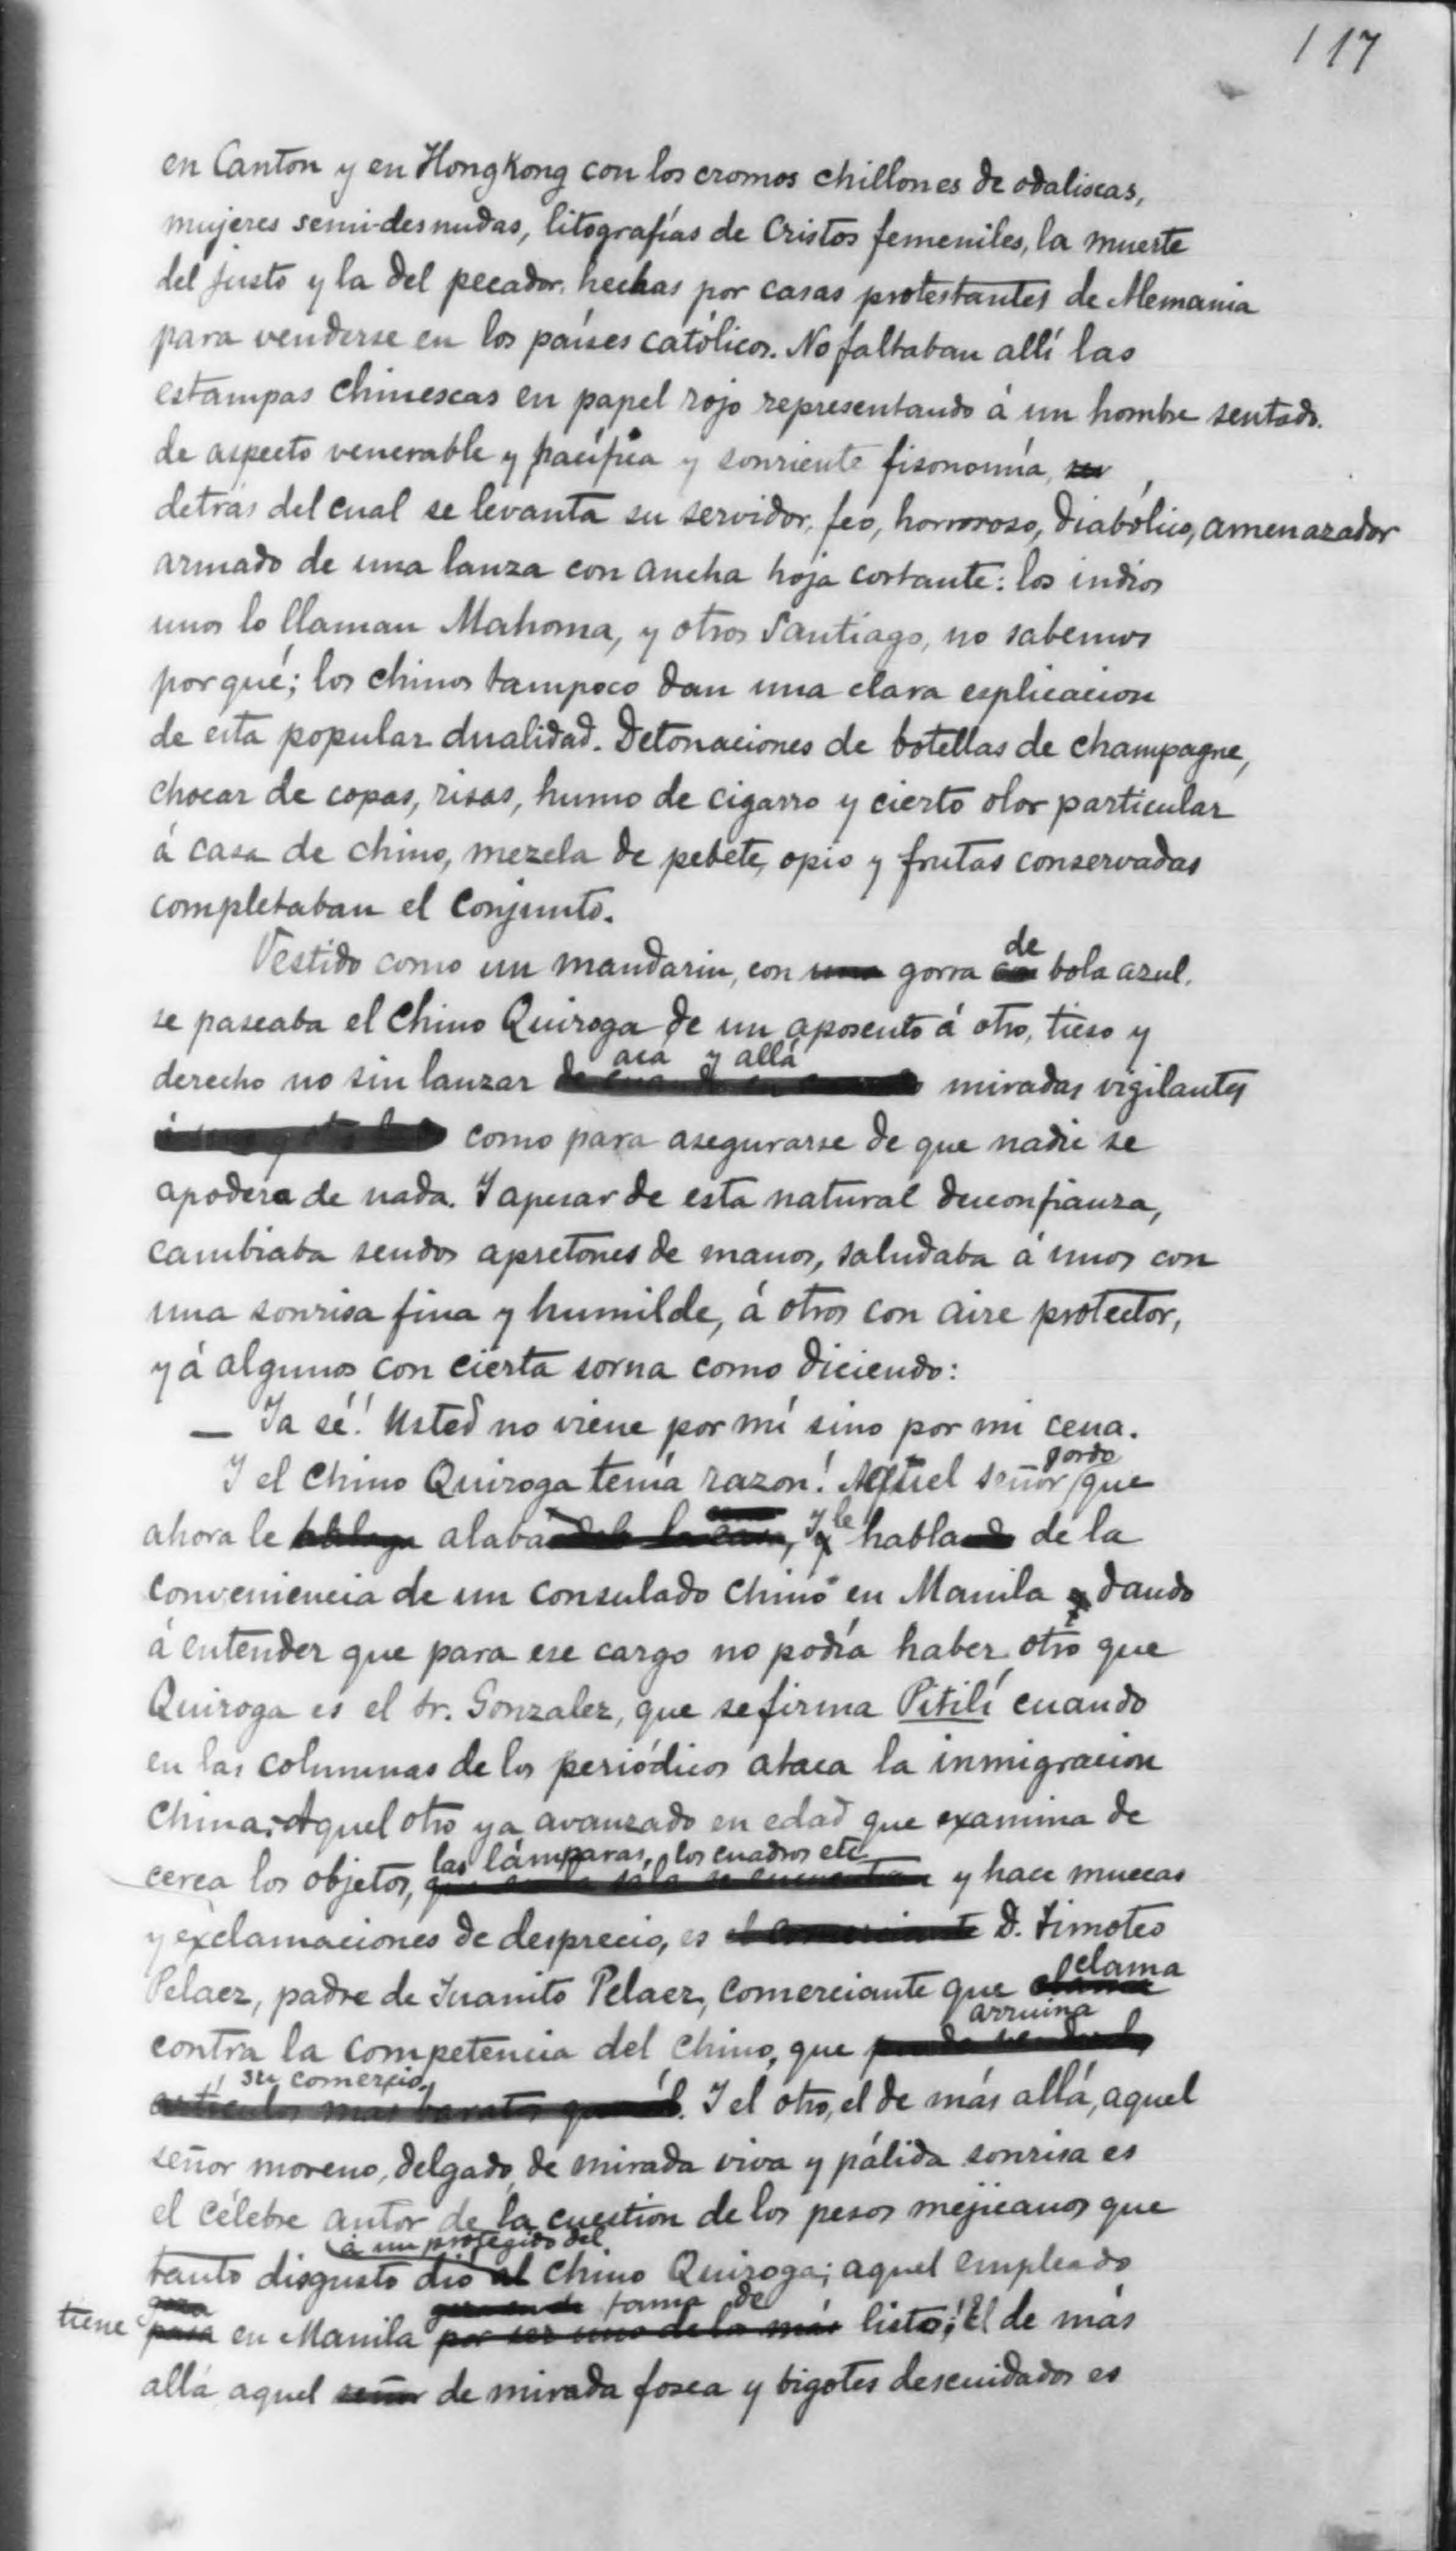 117
en Canton y en Hongkong con los cromos chillones de odaliscas,
mujeres semi-desnudas, litografías de Cristos femeniles, la muerte
del justo y la del pecador, hechas por casas protestantes de Alemania
para venderse en los países católicos. No faltaban allí las
estampas chinescas en papel rojo representando á un hombre sentado.
de aspecto venerable y pacífica y sonriente fisonomía,
detrás del cual se levanta su servidor, feo, horroroso, diabólico, amenazador
armado de una lanza con ancha hoja cortante: los indios
unos lo llaman Mahoma, y otros Santiago, no sabemos
porqué; los chinos tampoco dan una clara esplicacion
de esta popular dualidad. Detonaciones de botellas de champagne,
chocar de copas, risas, humo de cigarro y cierto olor particular
á casa de chino, mezcla de pebete, opio y frutas conservadas
completaban el conjunto.
de
Vestido como un mandarin, con una gorra con bola azul.
se paseaba el Chino Quiroga de un aposento á otro, tieso y
acá y allá
derecho no sin lanzar de cuando en cuando miradas vigilantes
como para asegurarse de que nadie se
apodera de nada. Y apesar de esta natural desconfianza,
cambiaba sendos apretones de manos, saludaba á unos con
una sonrisa fina y humilde, á otros con aire protector,
y á algunos con cierta sorna como diciendo:
— Ya sé! Usted no viene por mí sino por mi cena.
gordo
Y el Chino Quiroga tenía razon! Aquel señor que
ahora le alaba y le habla de la
conveniencia de un consulado chino en Manila dando
á entender que para ese cargo no podía haber otro que
Quiroga es el sr. Gonzalez, que se firma Pitilí cuando
en las columnas de los periódicos ataca la inmigracion
china. Aquel otro ya avanzado en edad que examina de
las lámparas, los cuadros etc
cerca los objetos, que en la sala se encuentran y hace muecas
y exclamaciones de desprecio, es el comerciante D. Timoteo
clama
Pelaez, padre de Juanito Pelaez, comerciante que
arruina
contra la competencia del chino, que
su comercio.
articulos mas baratos que él. Y el otro, el de más allá, aquel
señor moreno, delgado, de mirada viva y pálida sonrisa es
el célebre autor de la cuestion de los pesos mejicanos que
á un protegido del
tanto disgusto dió al Chino Quiroga; aquel empleado
goza fama de
tiene pasa en Manila por ser uno de los más listo; El de más
allá aquel señor de mirada fosca y bigotes descuidados es